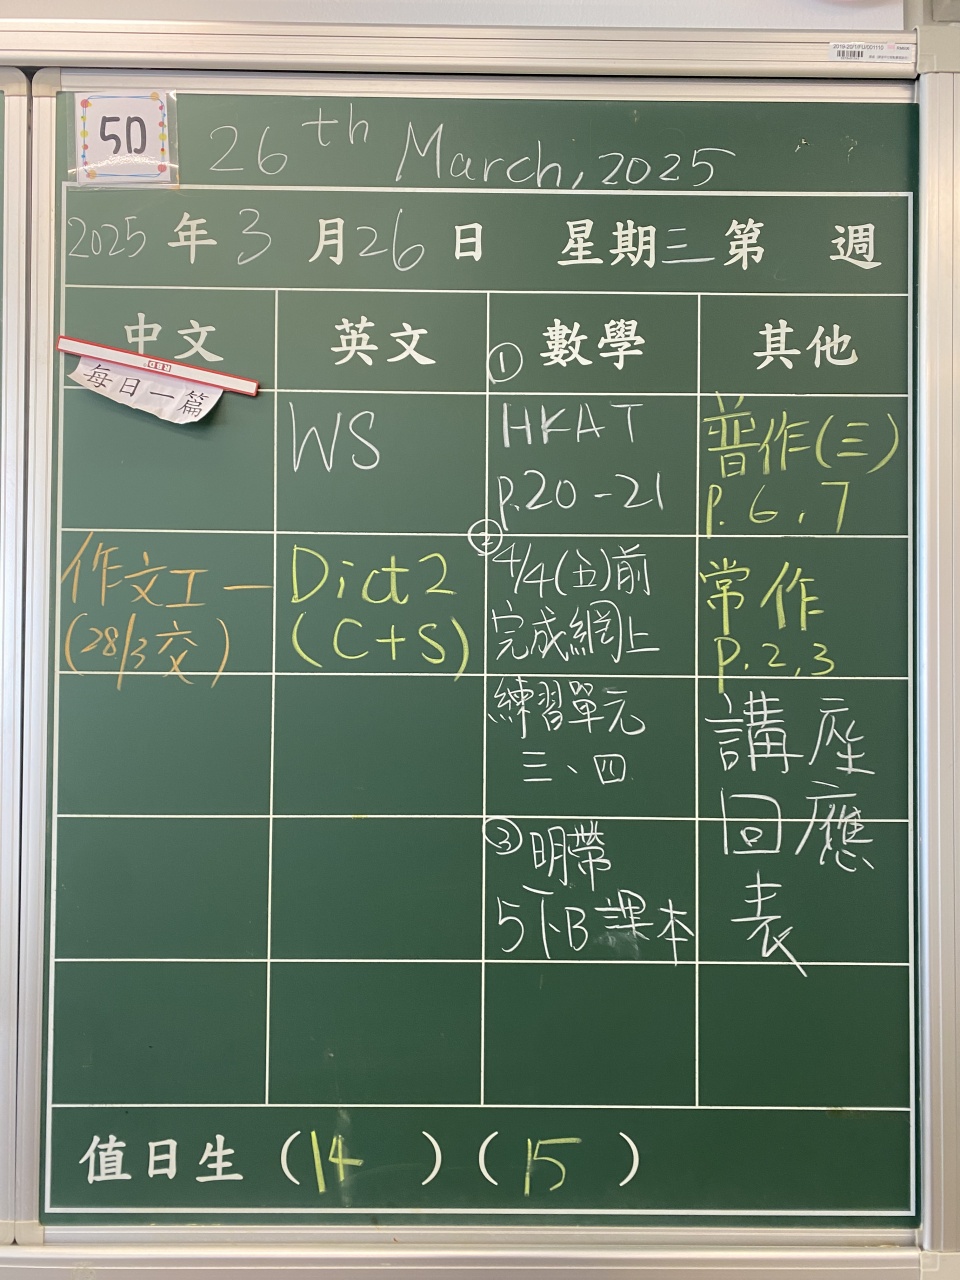 2019-20/1/FU/001110
5D
26th March, 2025
2025年3月26日 星期三第 週
中文
英文
數學
其他
每日一篇
RBD
作文工一
(28/3交)
WS
Dict 2
(C+S)
①
HKAT
p.20-21
②
4/4(五)前
完成網上
練習單元
三、四
③
明帶
5下B課本
普作(三)
p.6,7
常作
p.2,3
講座
回應
表
值日生(14)(15)